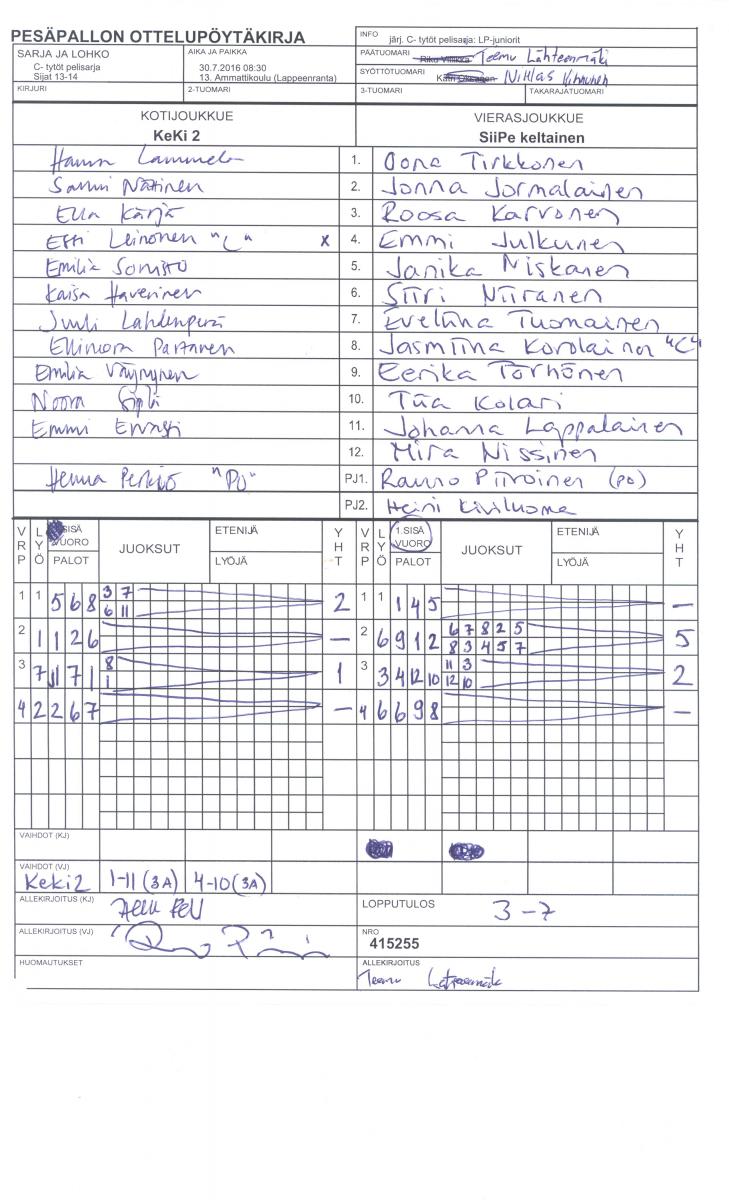 PESÄPALLON OTTELUPÖYTÄKIRJA
INFO järj. C- tytöt pelisarja: LP-juniorit
SARJA JA LOHKO
C- tytöt pelisarja
Sijat 13-14
AIKA JA PAIKKA
30.7.2016 08:30
13. Ammattikoulu (Lappeenranta)
PÄÄTUOMARI Teemu Lähteenmäki
SYÖTTÖTUOMARI Niklas
KIRJURI 2-TUOMARI 3-TUOMARI TAKARAJATUOMARI
KOTIJOUKKUE VIERASJOUKKUE
KeKi 2 SiiPe keltainen
Hanna Lammela 1. Oona Tirkkonen
Sanni Nätinen 2. Jonna Jormalainen
Ella Kärjä 3. Roosa Karvonen
Effi Leinonen "C" X 4. Emmi Julkunen
Emilia 5. Janika Niskanen
Kaisa Haverinen 6. Siiri Niiranen
Juuli Lahdenperä 7. Eveliina Tuomainen
Ellinoora Partanen 8. Jasmiina Korolainen "C"
Emilia Väyrynen 9. Eerika Törhönen
Noora 10. Tiia Kolari
Emmi 11. Johanna Lappalainen
12. Mira Nissinen
Henna "PJ" PJ1. Rauno Piiroinen (PJ)
PJ2. Heini Kiviluoma
VRP LYÖ SISÄ VUORO PALOT JUOKSUT ETENIJÄ LYÖJÄ YHT VRP LYÖ 1.SISÄ VUORO PALOT JUOKSUT ETENIJÄ LYÖJÄ YHT
1 1 5 6 8 3 7 2 1 1 1 4 5 –
6 11
2 1 1 2 6 – 2 6 9 1 2 6 7 8 2 5 5
8 3 4 5 7
3 7 11 7 1 8 1 3 3 4 12 10 11 3 2
1 12 10
4 2 2 6 7 – 4 6 6 9 8 –
VAIHDOT (KJ)
VAIHDOT (VJ)
Keki2 1-11 (3A) 4-10 (3A)
ALLEKIRJOITUS (KJ)
LOPPUTULOS 3-7
ALLEKIRJOITUS (VJ)
NRO
415255
HUOMAUTUKSET
ALLEKIRJOITUS
Teemu